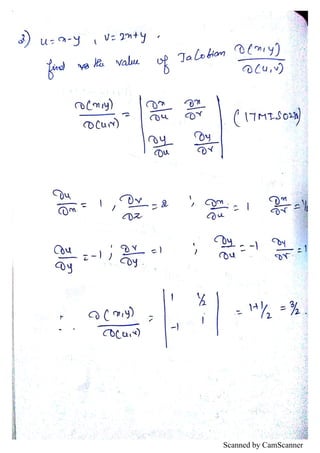 3) u = x-y , v = 2x+y .
find us the value of Jacobian ∂(x,y)/∂(u,v)
∂(x,y)/∂(u,v) = | ∂x/∂u ∂x/∂v ; ∂y/∂u ∂y/∂v | (17MIS02
∂u/∂x = 1 , ∂v/∂x = 2 ; ∂x/∂u = 1 ∂x/∂v = ½
∂u/∂y = -1 ; ∂v/∂y = 1 ; ∂y/∂u = -1 ∂y/∂v = 1
∴ ∂(x,y)/∂(u,v) = | 1 ½ ; -1 1 | = 1+½ = 3/2.
Scanned by CamScanner